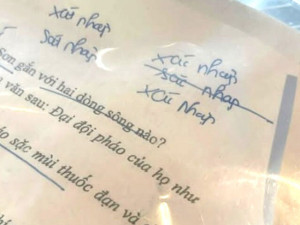 xát nhập
sát nhập
xác nhập
sác nhập
xác nhập
Sơn gắn với hai dòng sông nào?
văn sau: Đại đội pháo của họ như
sặc mùi thuốc đạn và